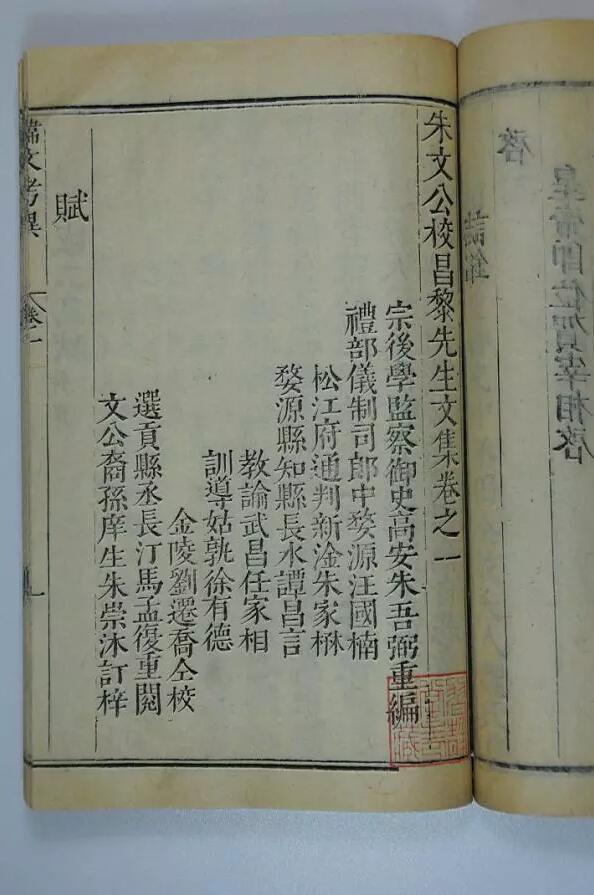 皇帝即位賀宰相啓
誌銘
啓
朱文公校昌黎先生文集卷之一
宗後學監察御史高安朱吾弼重編
禮部儀制司郎中婺源汪國楠
松江府通判新淦朱家楙
婺源縣知縣長水譚昌言
教諭武昌任家相
訓導姑孰徐有德
金陵劉遷喬仝校
選貢縣丞長汀馬孟復重閱
文公裔孫庠生朱崇沐訂梓
賦
韓文考異
卷之一